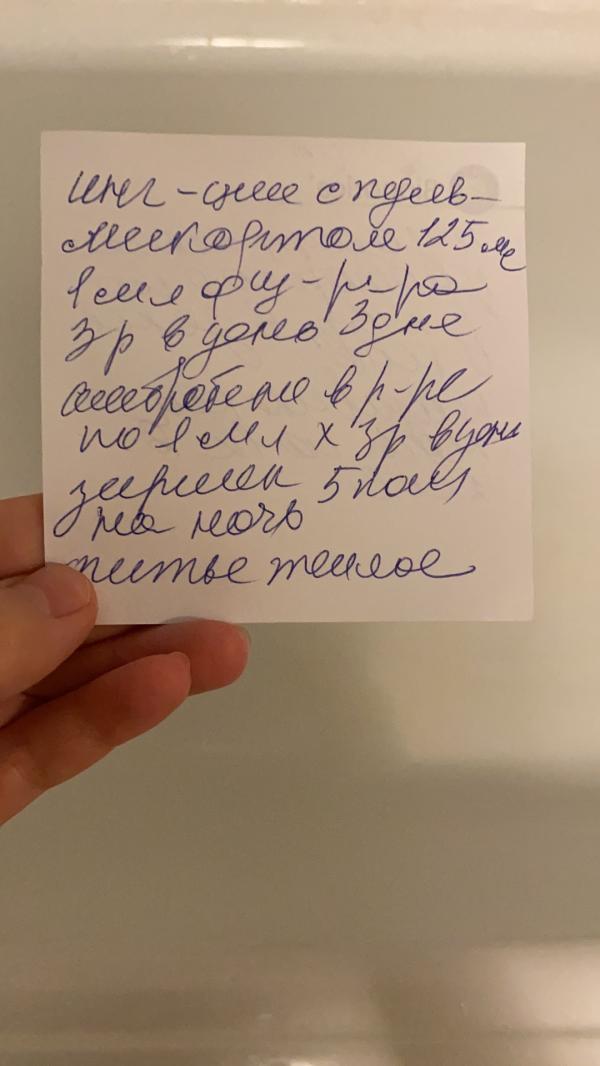 инг-ции с пульв-
микортом 125 мг
1 мл физ-р-ра
3 р в день 3 дня
амбробене в р-ре
по 1 мл х 3р в день
зиртек 5 кап
на ночь
питье теплое